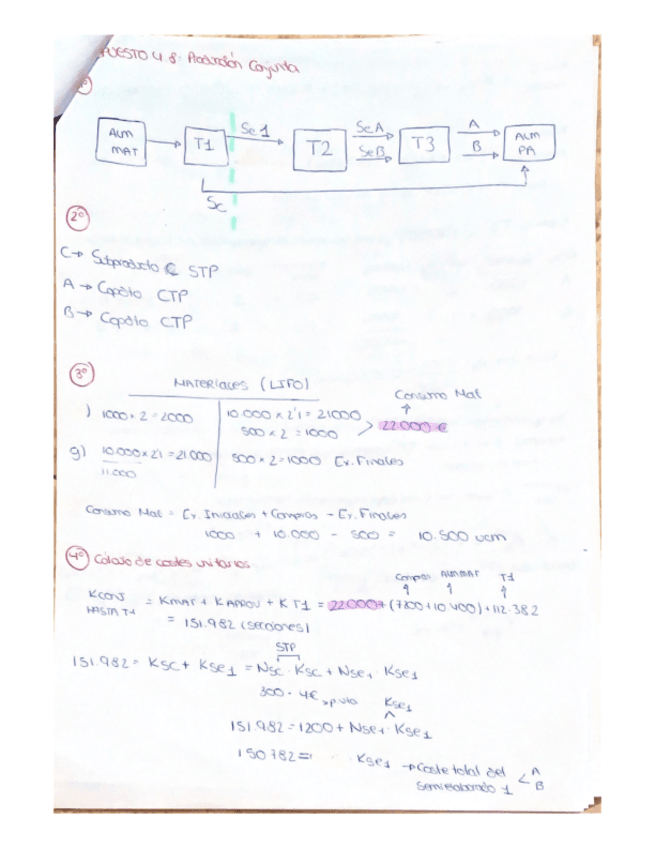 PUESTO 4.8: Producción Conjunta
1º
ALM MAT
T1
Se1
T2
SeA
SeB
T3
A
B
ALM PA
Sc
2º
C → Subproducto C STP
A → Copdto CTP
B → Copdto CTP
3º
MATERIALES (LIFO)
Consumo Mat
) 1000 x 2 = 2000
10.000 x 2'1 = 21000
500 x 2 = 1000
22.000 €
g) 10.000x2'1 = 21.000
500 x 2 = 1000 Ex. Finales
11.000
Consumo Mat = Ex. Iniciales + Compras - Ex. Finales
1000 + 10.000 - 500 = 10.500 ucm
4º Cálculo de costes unitarios
Compras ALM MAT T1
KCONJ HASTA T1 = KMAT + KAPROV + KT1 = 22.000 + (7200 + 10.400) + 112.382
= 151.982 (secciones)
STP
151.982 = KSC + KSe1 = NSC · KSC + NSe1 · KSe1
300 · 4€
KSe1
151.982 = 1200 + NSe1 · KSe1
150.782 = KSe1 → Coste total del semielaborado 1 < A B